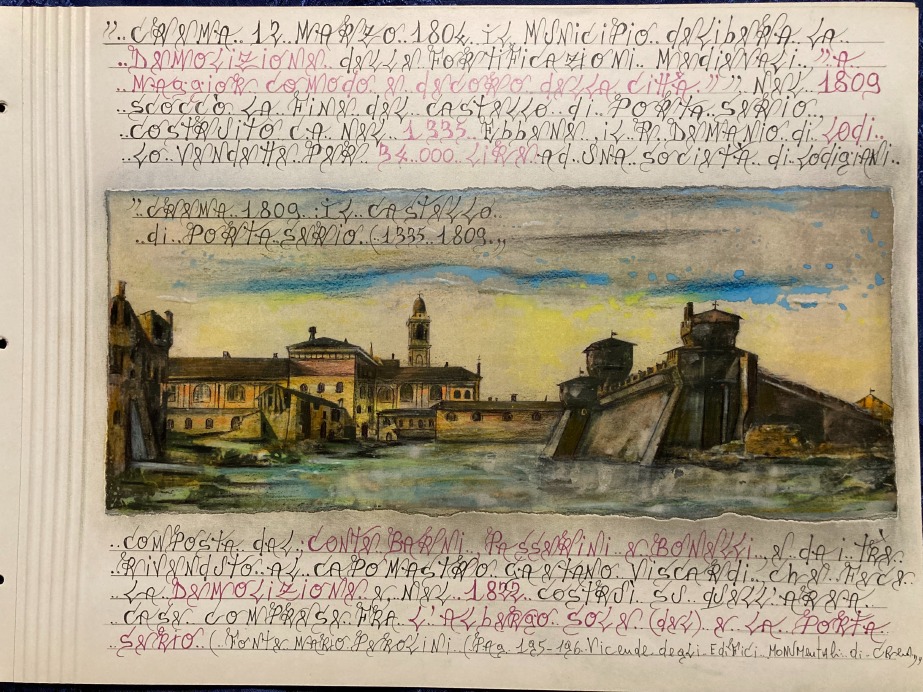 " CREMA. 12 MARZO. 1804. iL MUNiCiPiO. deLibERA LA
..DEMOLIZIONE. deLLE FORTiFiCAZiONi. MEdiEVALi. "A
..MAGGiOR COMODO E dECORO dELLA CiTTÀ." " NEL 1809
..SCOCCÒ LA FiNE dEL CASTELLO. di PORTA SERiO
..COSTRUiTO CA NEL 1335. EbbENE. iL R. DEMANiO. di LOdi.
..LO VENdETTE PER 34.000 LiRE ad UNA SOCiETÀ. di LOdigiANi..
" CREMA. 1809. iL CASTELLO.
..di.. PORTA SERiO. (1335. 1809.„
..COMPOSTA dAL, CONTE BARNi. PASSERiNi E BONELLi.. E dA i TRE
..RiVENdUTO. AL CAPOMASTRO GAETANO ViSCARdi. ChE FECE
..LA DEMOLiZiONE E NEL 1872 COSTRUÌ SU dELL'AREA
..CASE COMPRESE FRA L'ALbERgO SOLE (dEL) E LA PORTA
..SERiO (.FONTE MARiO PEROLiNi (PAg. 195-196. VicENdE dEgLi EdiFici MONUMENTALi. di CREMA„